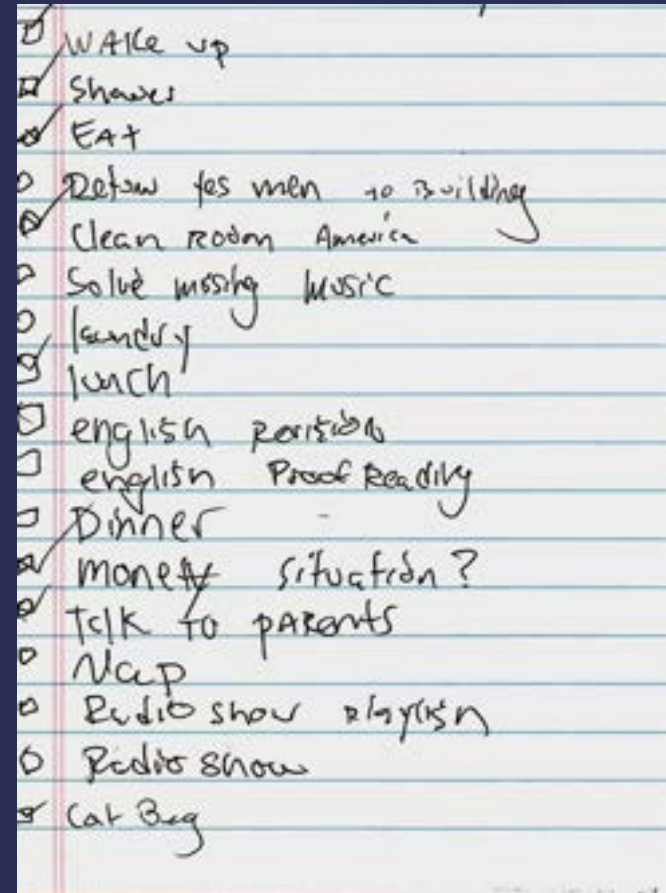 WAKe up
Shower
EAt
Return Yes men to Building
Clean Room America
Solve missing Music
laundry
lunch
english Revision
english Proof Reading
Dinner
money situation?
Talk to pARents
Nap
Radio show
Radio show
Cat Bag